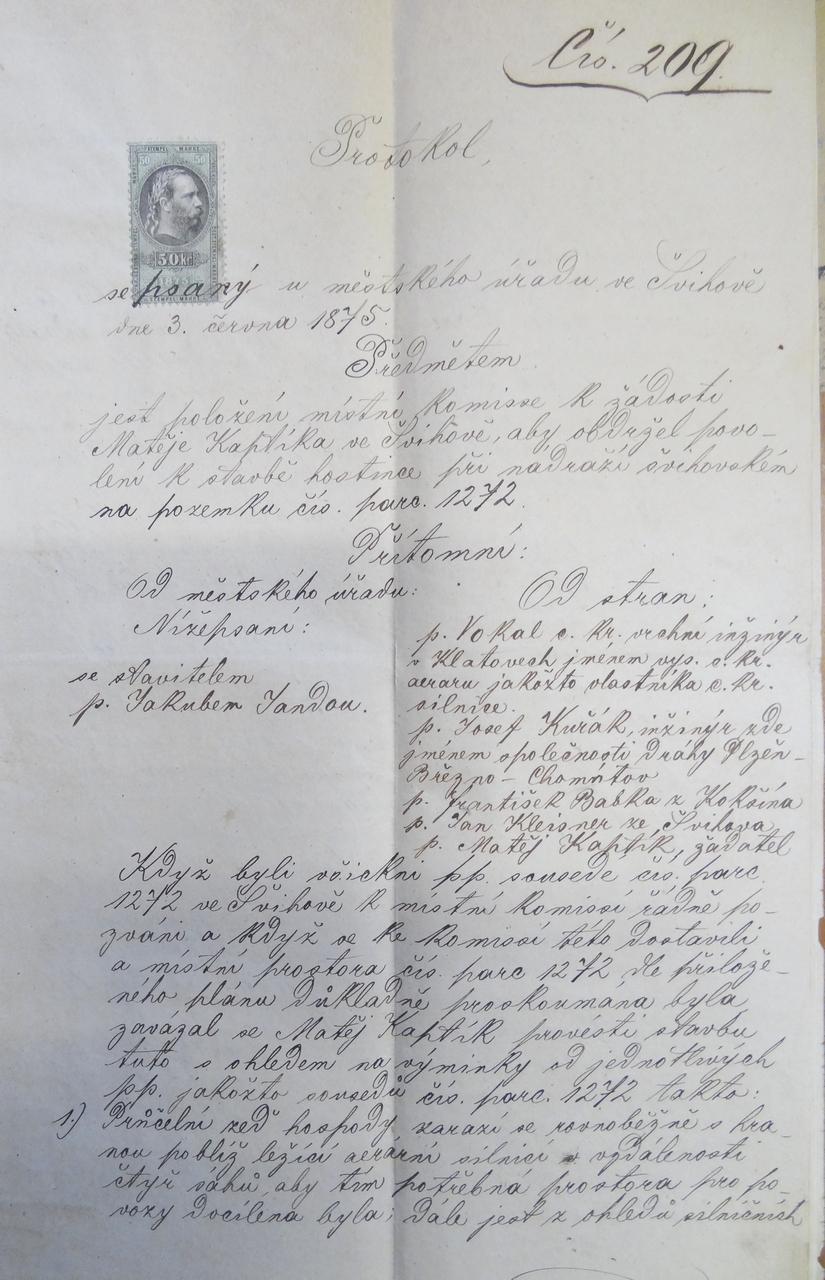 Čís. 209.
Protokol,
STEMPEL MARKE
50 50
50 kr
sepsaný u městského úřadu ve Švihově
dne 3. června 1875.
Předmětem
jest položení místní komisse k žádosti
Matěje Kaptíka ve Švihově, aby obdržel povo-
lení k stavbě hostince při nádraží švihovském
na pozemku čís. parc. 1272.
Přítomní:
Od městského úřadu:
Nížepsaní:
se stavitelem
p. Jakubem Jandou.
Od stran:
p. Vokal c. kr. vrchní inžinýr
v Klatovech jménem vys. c. kr.
aeraru jakožto vlastníka c. kr.
silnice.
p. Josef Kuřák, inžinýr zde
jménem společnosti dráhy Plzěn-
Březno-Chomútov
p. František Babka z Kokšína
p. Jan Kleisner ze Švihova
p. Matěj Kaptík, žadatel
Když byli všickni pp. sousedé čís. parc.
1272 ve Švihově k místní komissí řádně po-
zváni a když se ke komissí této dostavili
a místní prostora čís. parc 1272 dle přilože-
ného plánu důkladně proskoumána byla,
zavázal se Matěj Kaptík provésti stavbu
tuto s ohledem na výminky od jednotlivých
pp. jakožto sousedů čís. parc. 1272 takto:
1.) Průčelní zeď hospody zarazí se rovnoběžně s hra-
nou poblíž ležící aerární silnicí v vzdálenosti
čtyř sáhů, aby tím potřebná prostora pro po-
vozy docílena byla; dále jest z ohledů silničních